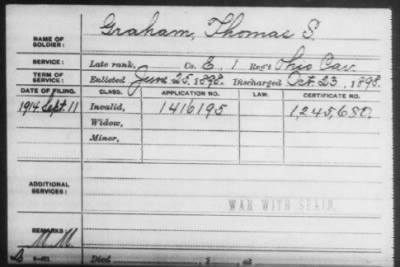 NAME OF SOLDIER: Graham, Thomas S.
SERVICE: Late rank, Co. E, 1 Reg't Ohio Cav.
TERM OF SERVICE: Enlisted June 25, 1898. Discharged Oct 23, 1898.
DATE OF FILING. CLASS. APPLICATION NO. LAW. CERTIFICATE NO.
1914 Sept. 11 Invalid, 1416195 1,245,680.
Widow,
Minor,
ADDITIONAL SERVICES:
WAR WITH SPAIN
REMARKS:
M.M.
Died , 1 , at